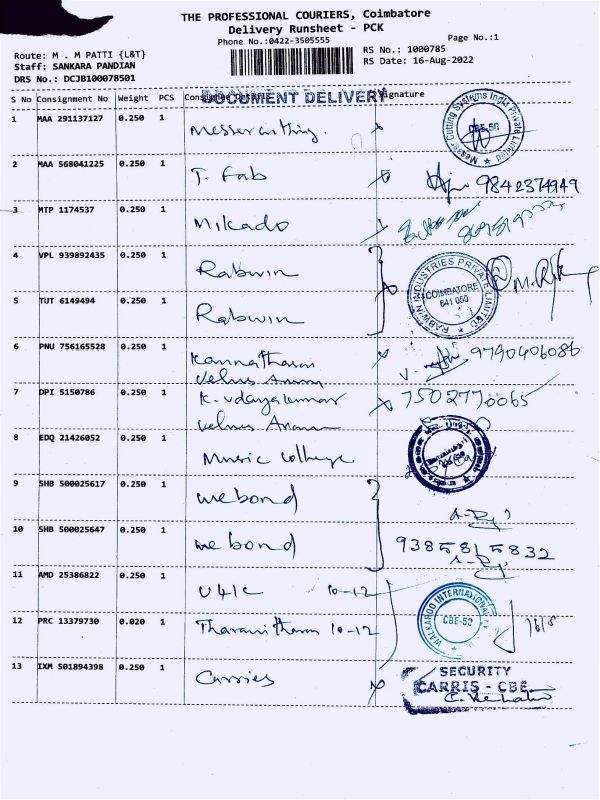 THE PROFESSIONAL COURIERS, Coimbatore
Delivery Runsheet - PCK
Phone No.:0422-3505555
Page No.:1
Route: M . M PATTI {L&T}
RS No.: 1000785
Staff: SANKARA PANDIAN
RS Date: 16-Aug-2022
DRS No.: DCJB100078501
DOCUMENT DELIVERY
S No Consignment No Weight PCS Consignee Signature
1 MAA 291137127 0.250 1 Messer cutting.
Messer Cutting Systems India Private Limited
CBE-50
2 MAA 568041225 0.250 1 T. Fab 9842374949
3 MTP 1174537 0.250 1 Mikado
4 VPL 939892435 0.250 1 Rabwin
RABWIN INDUSTRIES PRIVATE LIMITED
COIMBATORE
641 050
5 TUT 6149494 0.250 1 Rabwin
6 PNU 756165528 0.250 1 Kannatharan 9790406086
Velnus
7 DPI 5150786 0.250 1 K. Udayakumar 7502770065
Velnus
8 EDQ 21426052 0.250 1 Music College
9 SHB 500025617 0.250 1 we bond
10 SHB 500025647 0.250 1 we bond 9385815832
11 AMD 25386822 0.250 1 U41C 10-12
12 PRC 13379730 0.020 1 Tharanitharan 10-12
WALKAROO INTERNATIONAL
CBE-50
13 IXM 501894398 0.250 1 Carries
SECURITY
CARRIS - CBE